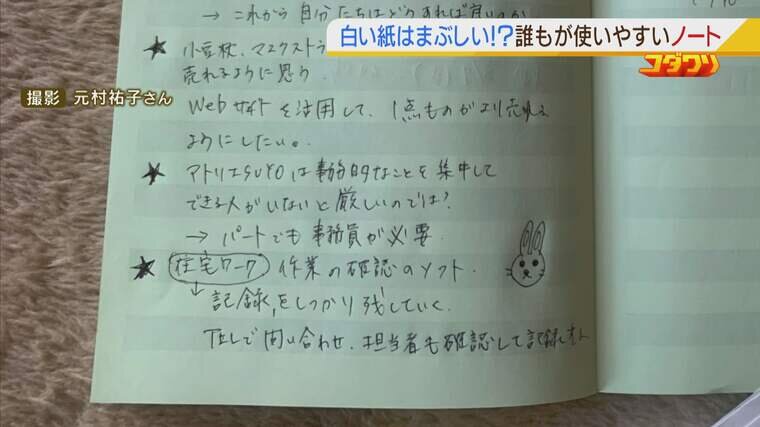 白い紙はまぶしい!?誰もが使いやすいノート
コダワリ
撮影 元村祐子さん
→ これから自分たちはどうすれば良いのか
★ 小豆枕、マスクストラ
売れるように思う
Webサイトを活用して、1点ものがより売れる
ようにしたい。
★ アトリエSUYOは事務的なことを集中して
できる人がいないと厳しいのでは?
→ パートでも事務員が必要
★ 在宅ワーク 作業の確認のソフト.
↓記録をしっかり残していく.
で問い合わせ.担当者も確認して記録